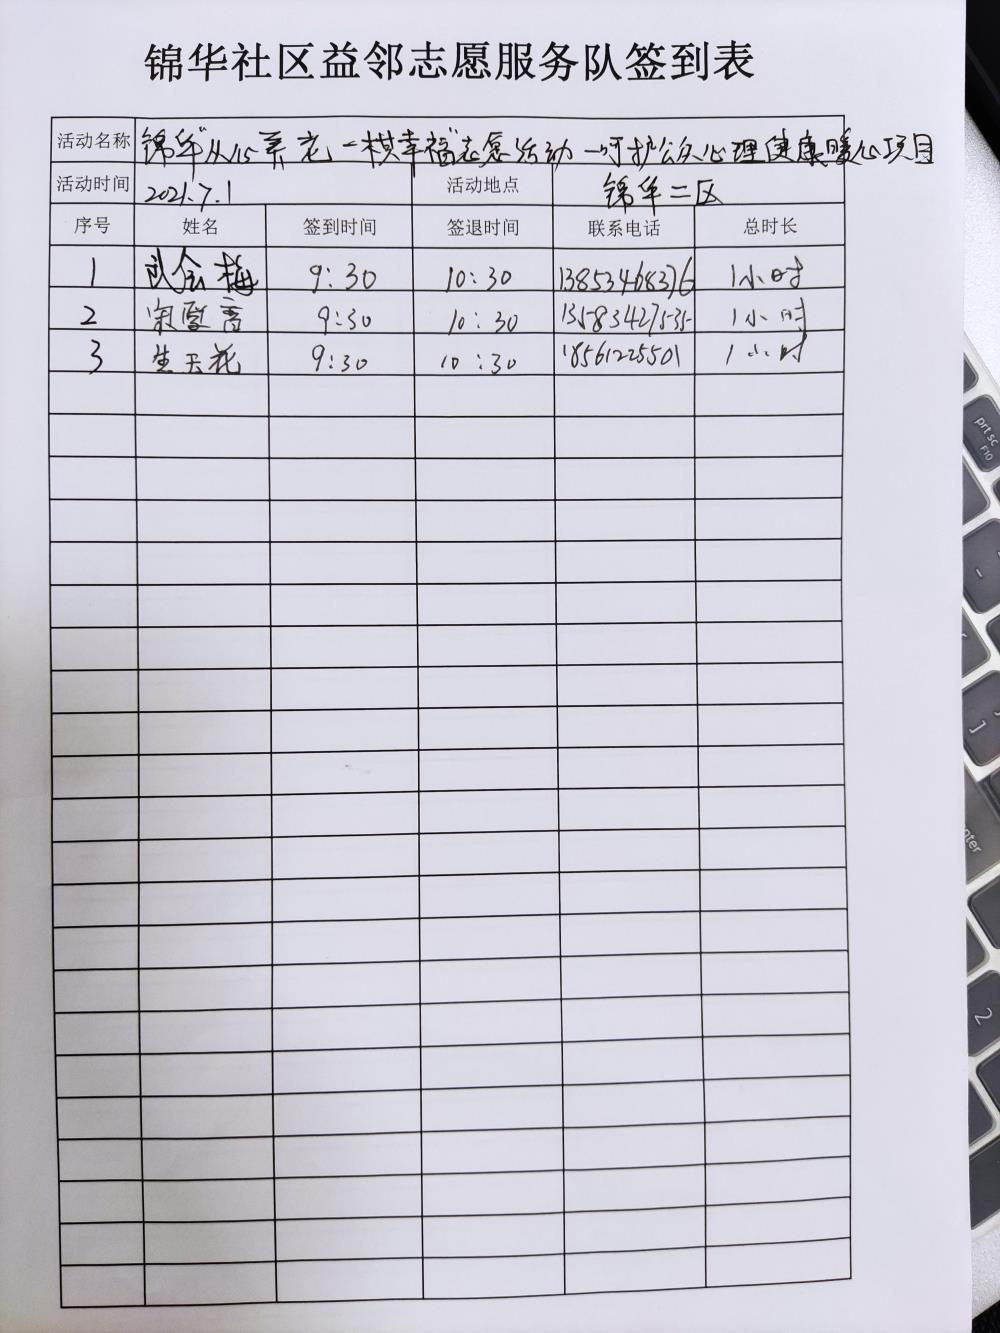 锦华社区益邻志愿服务队签到表
活动名称 锦华"从心养花 一棋幸福"志愿活动—呵护公众心理健康暖心项目
活动时间 2021.7.1 活动地点 锦华二区
序号 姓名 签到时间 签退时间 联系电话 总时长
1 武会梅 9:30 10:30 13853468376 1小时
2 9:30 10:30 13583427535 1小时
3 生天花 9:30 10:30 18561225501 1小时
prt sc
F10
-
]
enter
2